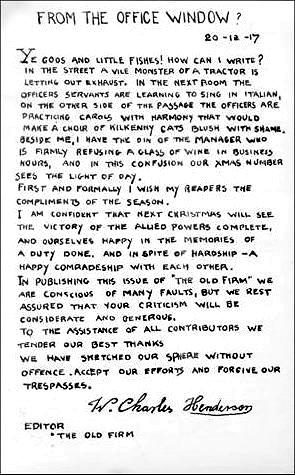 FROM THE OFFICE WINDOW?
20-12-17
YE GODS AND LITTLE FISHES! HOW CAN I WRITE?
IN THE STREET A VILE MONSTER OF A TRACTOR IS
LETTING OUT EXHAUST. IN THE NEXT ROOM THE
OFFICERS SERVANTS ARE LEARNING TO SING IN ITALIAN,
ON THE OTHER SIDE OF THE PASSAGE THE OFFICERS ARE
PRACTICING CAROLS WITH HARMONY THAT WOULD
MAKE A CHOIR OF KILKENNY CATS BLUSH WITH SHAME.
BESIDE ME, I HAVE THE DIN OF THE MANAGER WHO
IS FIRMLY REFUSING A GLASS OF WINE IN BUSINESS
HOURS, AND IN THIS CONFUSION OUR XMAS NUMBER
SEES THE LIGHT OF DAY.
FIRST AND FORMALLY I WISH MY READERS THE
COMPLIMENTS OF THE SEASON.
I AM CONFIDENT THAT NEXT CHRISTMAS WILL SEE
THE VICTORY OF THE ALLIED POWERS COMPLETE,
AND OURSELVES HAPPY IN THE MEMORIES OF
A DUTY DONE, AND IN SPITE OF HARDSHIP - A
HAPPY COMRADESHIP WITH EACH OTHER.
IN PUBLISHING THIS ISSUE OF "THE OLD FIRM" WE
ARE CONSCIOUS OF MANY FAULTS, BUT WE REST
ASSURED THAT YOUR CRITICISM WILL BE
CONSIDERATE AND GENEROUS.
TO THE ASSISTANCE OF ALL CONTRIBUTORS WE
TENDER OUR BEST THANKS
WE HAVE SKETCHED OUR SPHERE WITHOUT
OFFENCE. ACCEPT OUR EFFORTS AND FORGIVE OUR
TRESPASSES.
W. Charles Henderson
EDITOR
"THE OLD FIRM